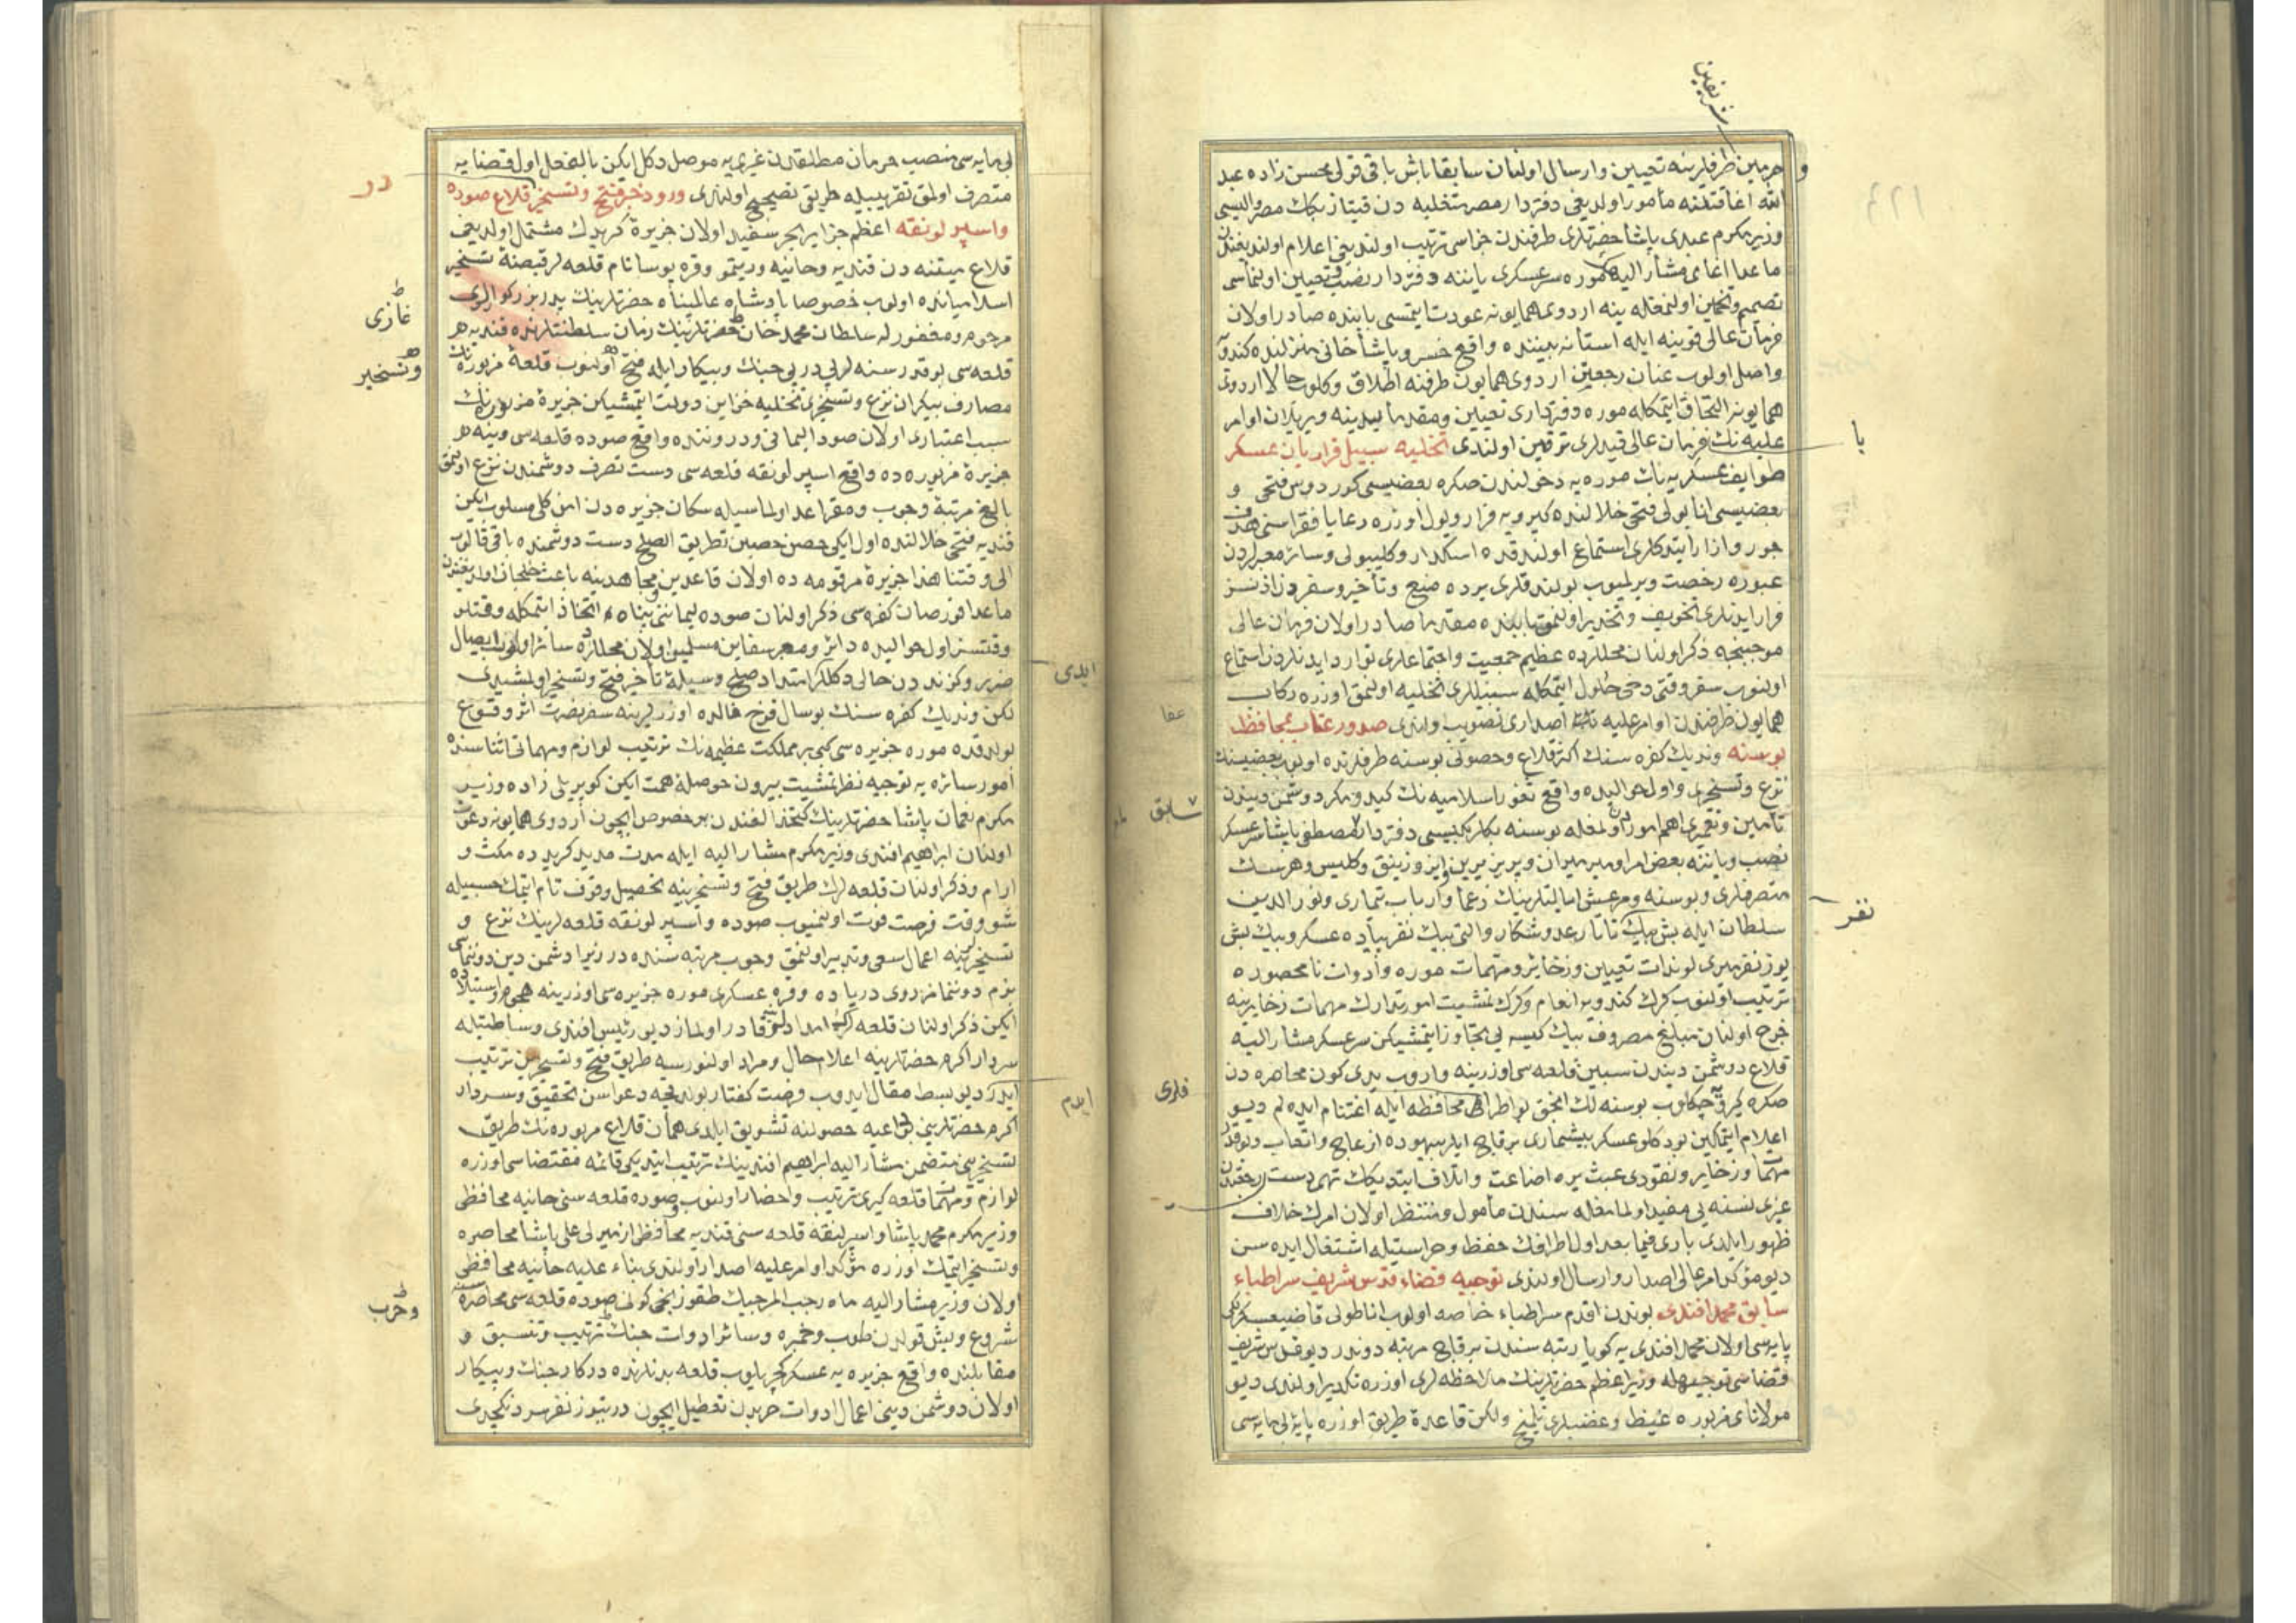 شریفین
و حرمین طرفلرینه تعیین وارسال اولنان سابقا باش باقی قولی محسن زاده عبد
الله اغا مأمور اولدیغی دفتردار مصر متخلیه دن قیتاز بك مصر والیسی
وزیر مکرم عبدی پاشا حضرتلری طرفندن جزاسی ترتیب اولندیغی اعلام اولندیغندن
ماعدا اغای مشار الیه موره سرعسکری یاننه دفتردار نصب وتعیین اولنماسی
تصمیم وتخمین اولنمغله ینه اردوی همایونه عودت ایتمسی بابنده صادر اولان
فرمان عالی قوینه ایله استانه یننده واقع خسرو پاشا خانی منزلنده کندویه
واصل اولوب عنان رجعتین اردوی همایون طرفنه اطلاق وکلوب حالا اردوی
همایونه التحاق ایتمکله موره دفترداری تعیین ومقدما یدینه ویریلان اوامر
یا
علیه نك فرمان عالی قیدلری ترقین اولندی تخلیه سبیل فراریان عسکر
طوایف عسکریه نك موره یه دخولندن صکره بعضیسی کوردوس فتحی و
بعضیسی انابولی فتحی خلالنده کیرویه فرار ویول اوزره رعایا فقراسنی هدف
جور واذا ایتدکلری استماع اولندقده اسکدار وکلیبولی وسائر معبرلردن
عبوره رخصت ویرلمیوب بولندقلری یرده منع وتأخیر وسفردن اذنسز
فرار ایدنلری تخویف وتحذیر اولنمق بابنده مقدما صادر اولان فرمان عالی
موجبنجه ذکر اولنان محللرده عظیم جمعیت واجتماعلری توارد ایدنلردن استماع
اولنوب سفر وقتی دخی حلول ایتمکله سبیللری تخلیه اولنمق اوزره رکاب
همایون طرفندن اوامر علیه اصداری تصویب اولندی صدور عتاب بمحافظ
عفا
بوسنه وندیك کفره سنك اکثر قلاع وحصونی بوسنه طرفلرنده اولوب بعضیسنك
نزع وتسخیری واول حوالیده واقع ثغور اسلامیه نك کید ومکر دوشمن دیندن
سابق
تأمین وتعمیری اهم اموردن اولمغله بوسنه بکلربکیسی دفتردار مصطفی پاشا سرعسکر
نصب ویاننه بعض امرا ومیر میران وپریزرین وایزوزنیق وکلیس وهرسك
متصرفلری وبوسنه ومرعش ایالتلرینك زعما وارباب تیماری ونور الدین
نفر
سلطان ایله بش بیك تاتار عدو شکار والتی بیك نفر پیاده عسکر وبیك بش
یوز نفر میری لوندات تعیین وذخائر ومهمات موره وادوات نامحصوره
ترتیب اولنوب کرك کندویه انعام وکرك تمشیت امور تدارك مهمات ذخایرینه
خرج اولنان مبالغ مصروف بیك کیسه یی تجاوز ایتمشیکن سرعسکر مشار الیه
قلاع دوشمن دیندن سبین قلعه سی اوزرینه واروب یدی کون محاصره دن
فلری
صکره کیرو چکلوب بوسنه لك انجق بو اطرافی محافظه ایله اغتنام ایده لم دیو
اعلام ایتمکین بودکلو عسکر بیشماری برقاچ ایلر بیهوده ازعاج واتعاب وبوقدر
مهمات وذخایر ونقودی عبث یره اضاعت واتلاف ایتدیکك تهمدست رجعتدن
غیری نسنه یی مفید اولمامغله سندن مأمول ومنتظر اولان امرك خلاف
ظهور ایلدی باری فیما بعد اول اطرافك حفظ وحراستیله اشتغال ایده سن
دیو مؤکد امر عالی اصدار وارسال اولندی توجیه قضاء قدس شریف سراطباء
سابق محمد افندی بوندن اقدم سراطباء خاصه اولوب اناطولی قاضیعسکرلکی
پایه سی اولان محمد افندی یه کویا رتبه سندن برقاچ مرتبه دوندر دیو قدس شریف
قضاسی توجیهله وزیر اعظم حضرتلرینك ملاحظه لری اوزره تکدیر اولندی دیو
مولانای مزبوره غیظ وغضبلری تبلیغ ولکن قاعده طریق اوزره پایه لی پایه سی
لی پایه سی منصب حرمان مطلقدن غیری یه موصل دکل ایکن بالفعل اول قضایه
در
متصرف اولمق تقریبیله طریقی تصحیح اولندی ورود خبر فتح وتسخیر قلاع صوده
واسپرلونقه اعظم جزایر بحر سفید اولان جزیرة کریدك مشتمل اولدیغی
قلاع میتنه دن قندیه وحانیه ورتمو وقره بوسا نام قلعه لر قبضۀ تسخیر
اسلامیانده اولوب خصوصا پادشاه عالمپناه حضرتلرینك پدر بزرکواری
غازی
مرحوم ومغفور له سلطان محمد خان حضرتلرینك زمان سلطنتلرنده قندیه هر
وتسخیر
قلعه سی بوقدر سنه لر پی در پی جنك وپیکار ایله فتح اولنوب قلعۀ مزبوره نك
مصارف بیکران نزع وتسخیری تخلیه خزاین دولت ایتمشیکن جزیرۀ مزبوره نك
سبب اعتباری اولان صوده لیمانی ودروننده واقع صوده قلعه سی وینه هر
جزیرۀ مزبوره ده واقع اسپرلونقه قلعه سی دست تصرف دوشمندن نزع اولنمق
بالغ مرتبۀ وجوب ومقراعدا اولماسیله سکان جزیره دن امن کلی مسلوب ایکن
قندیه فتحی خلالنده اول ایکی حصن حصین بطریق الصلح دست دوشمنده باقی قالوب
الی وقتنا هذا جزیرۀ مرقومه ده اولان قاعدین ومجاهدینه باعث خلجان اولدیغندن
ماعدا قورصان کفره سی ذکر اولنان صوده لیماننی پناه اتخاذ ایتمکله وقتلو
وقتسز اول حوالیده دائر ومعبر سفاین مسلمین اولان محللرده سائر اولوب ایصال
ایدی
ضرر وکزنددن خالی دکللر ایدی امتداد صلح وسیلۀ تأخیر فتح وتسخیر اولمشیدی
لکن وندیك کفره سنك بو سال فرخ فالده اوزرلرینه سفر نصرت اثر وقوع
بولدقده موره جزیره سی کبی بر مملکت عظیمه نك ترتیب لوازم ومهماتی اثناسنده
امور سائره یه توجیه نظر تمشیت بیرون حوصلۀ همت ایکن کوپریلی زاده وزیر
مکرم نعمان پاشا حضرتلرینك کتخدالغندن بر خصوص ایچون اردوی همایونه دعوت
اولنان ابراهیم افندی وزیر مکرم مشار الیه ایله مدت مدید کریدده مکث و
ارام وذکر اولنان قلعه لرك طریق فتح وتسخیرینه تحصیل وقوف تام ایتمك حسبیله
شو وقت فرصت فوت اولنمیوب صوده واسپرلونقه قلعه لرینك نزع و
تسخیرلرینه اعمال سعی وتدبیر اولنمق وجوب مرتبه سنده در زیرا دشمن دین دوننماسی
بزم دوننمامز روی دریاده وقره عسکری موره جزیره سی اوزرینه هجوم واستیلاده
ایکن ذکر اولنان قلعه لره امداد ایتمکه قادر اولماز دیو رئیس افندی وساطتیله
سردار اکرم حضرتلرینه اعلام حال ومراد اولنورسه طریق فتح وتسخیرین ترتیب
ایدم
ایدرك دیو بسط مقال ایدوب فرصت کفتار بولدیجه دعواسن تحقیق وسردار
اکرم حضرتلرینی بو داعیه حصولنه تشویق ایلدی همان قلاع مزبوره نك طریق
تسخیرینی متضمن مشار الیه ابراهیم افندینك ترتیب ایتدیکی قائمه مقتضاسی اوزره
لوازم ومهمات قلعه کیری ترتیب واحضار اولنوب وصوده قلعه سنی حانیه محافظی
وزیر مکرم محمد پاشا واسپرلنقه قلعه سنی قندیه محافظی ازمیرلی علی پاشا محاصره
وتسخیر ایتمك اوزره مؤکد اوامر علیه اصدار اولندی بناء علیه حانیه محافظی
اولان وزیر مشار الیه ماه رجب المرجبك طقوزنجی کونی صوده قلعه سی محاصره سنه
وحرب
شروع وبش قولدن طوپ وخمبره وسائر ادوات جنك ترتیب وتنسیق و
مقابلنده واقع جزیره یه عسکر کچریلوب قلعه بدنلرنده درکار جنك وپیکار
اولان دوشمن دینی اعمال ادوات حربدن تعطیل ایچون درتیوز نفر سردنکچدی